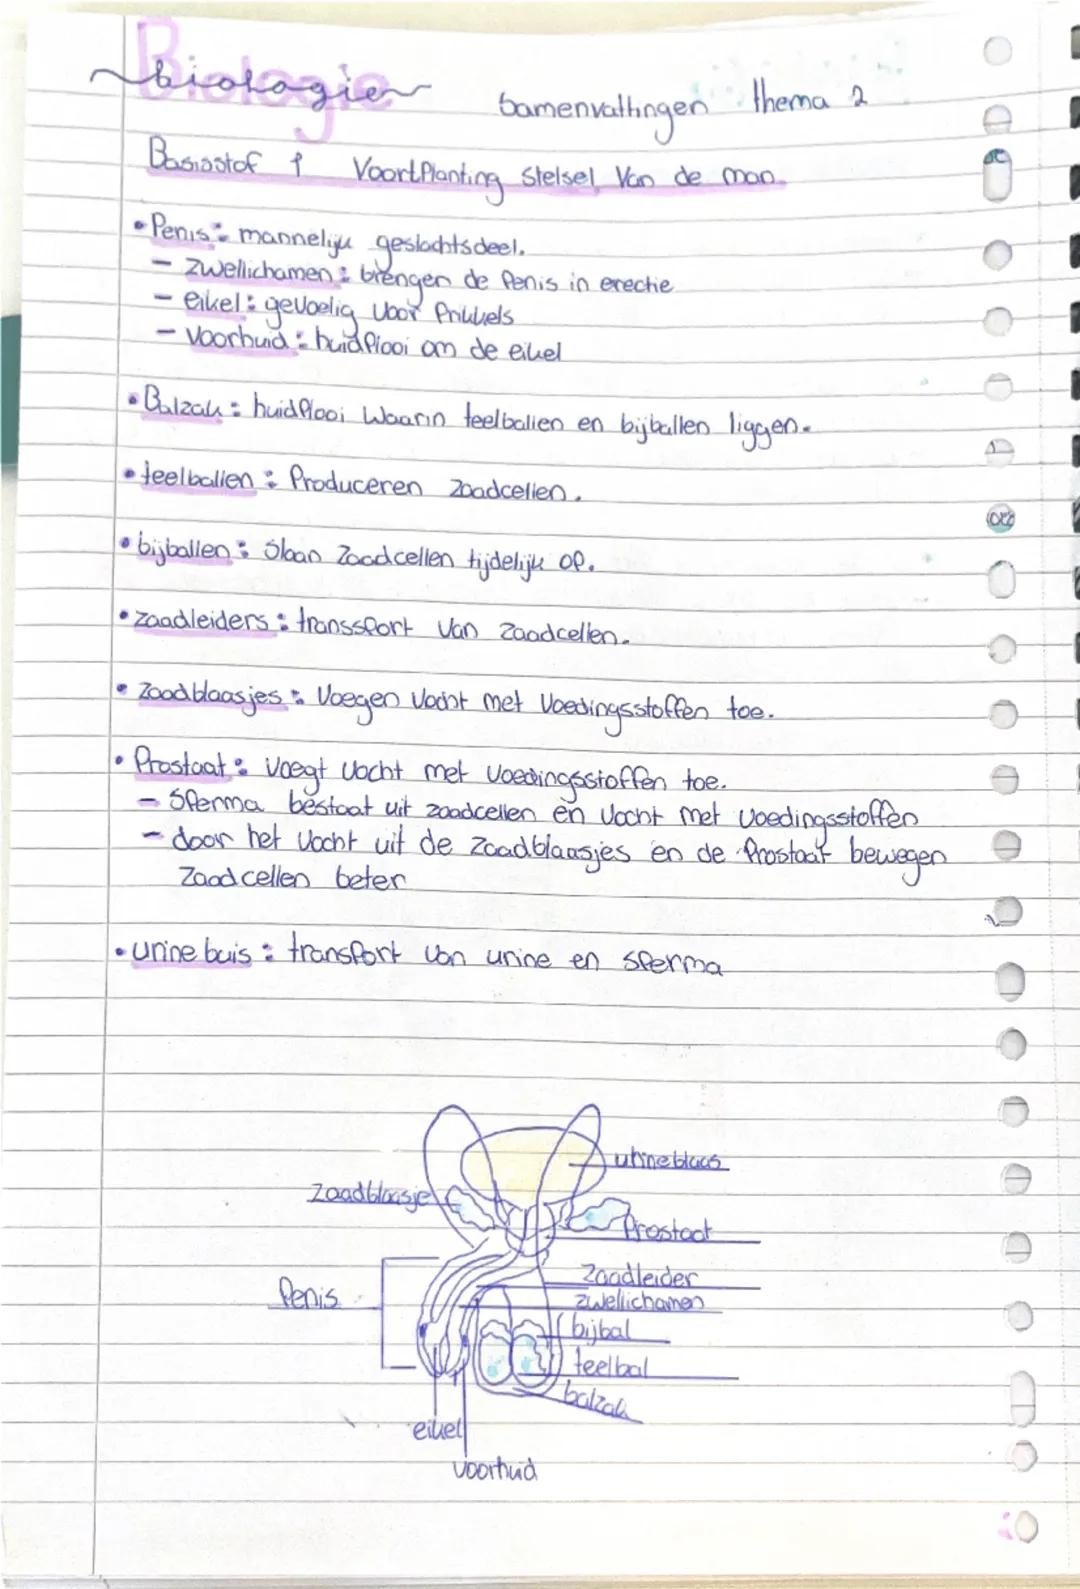 Biologie
biologie
Samenvattingen thema 2
Basisstof 1 Voortplanting stelsel Van de man
• Penis: mannelijk geslachtsdeel.
- Zwellichamen: brengen de penis in erectie
- eikel: gevoelig voor prikkels
- Voorhuid: huidplooi om de eikel
• Balzak: huidplooi Waarin teelballen en bijballen liggen.
• teelballen: Produceren zaadcellen.
• bijballen: Slaan Zaadcellen tijdelijk op.
• zaadleiders: transsport Van Zaadcellen.
• Zaadblaasjes: Voegen Vocht met Voedingsstoffen toe.
• Prostaat: Voegt Vocht met Voedingsstoffen toe.
- Sperma bestaat uit zaadcellen en Vocht met Voedingsstoffen
- door het Vocht uit de Zaadblaasjes en de Prostaat bewegen
Zaadcellen beter
• urine buis: transport van urine en sperma
urineblaas
Zaadblaasje
Prostaat
Zaadleider
Penis
zwellichamen
bijbal
teelbal
balzak
eikel
Voorhuid